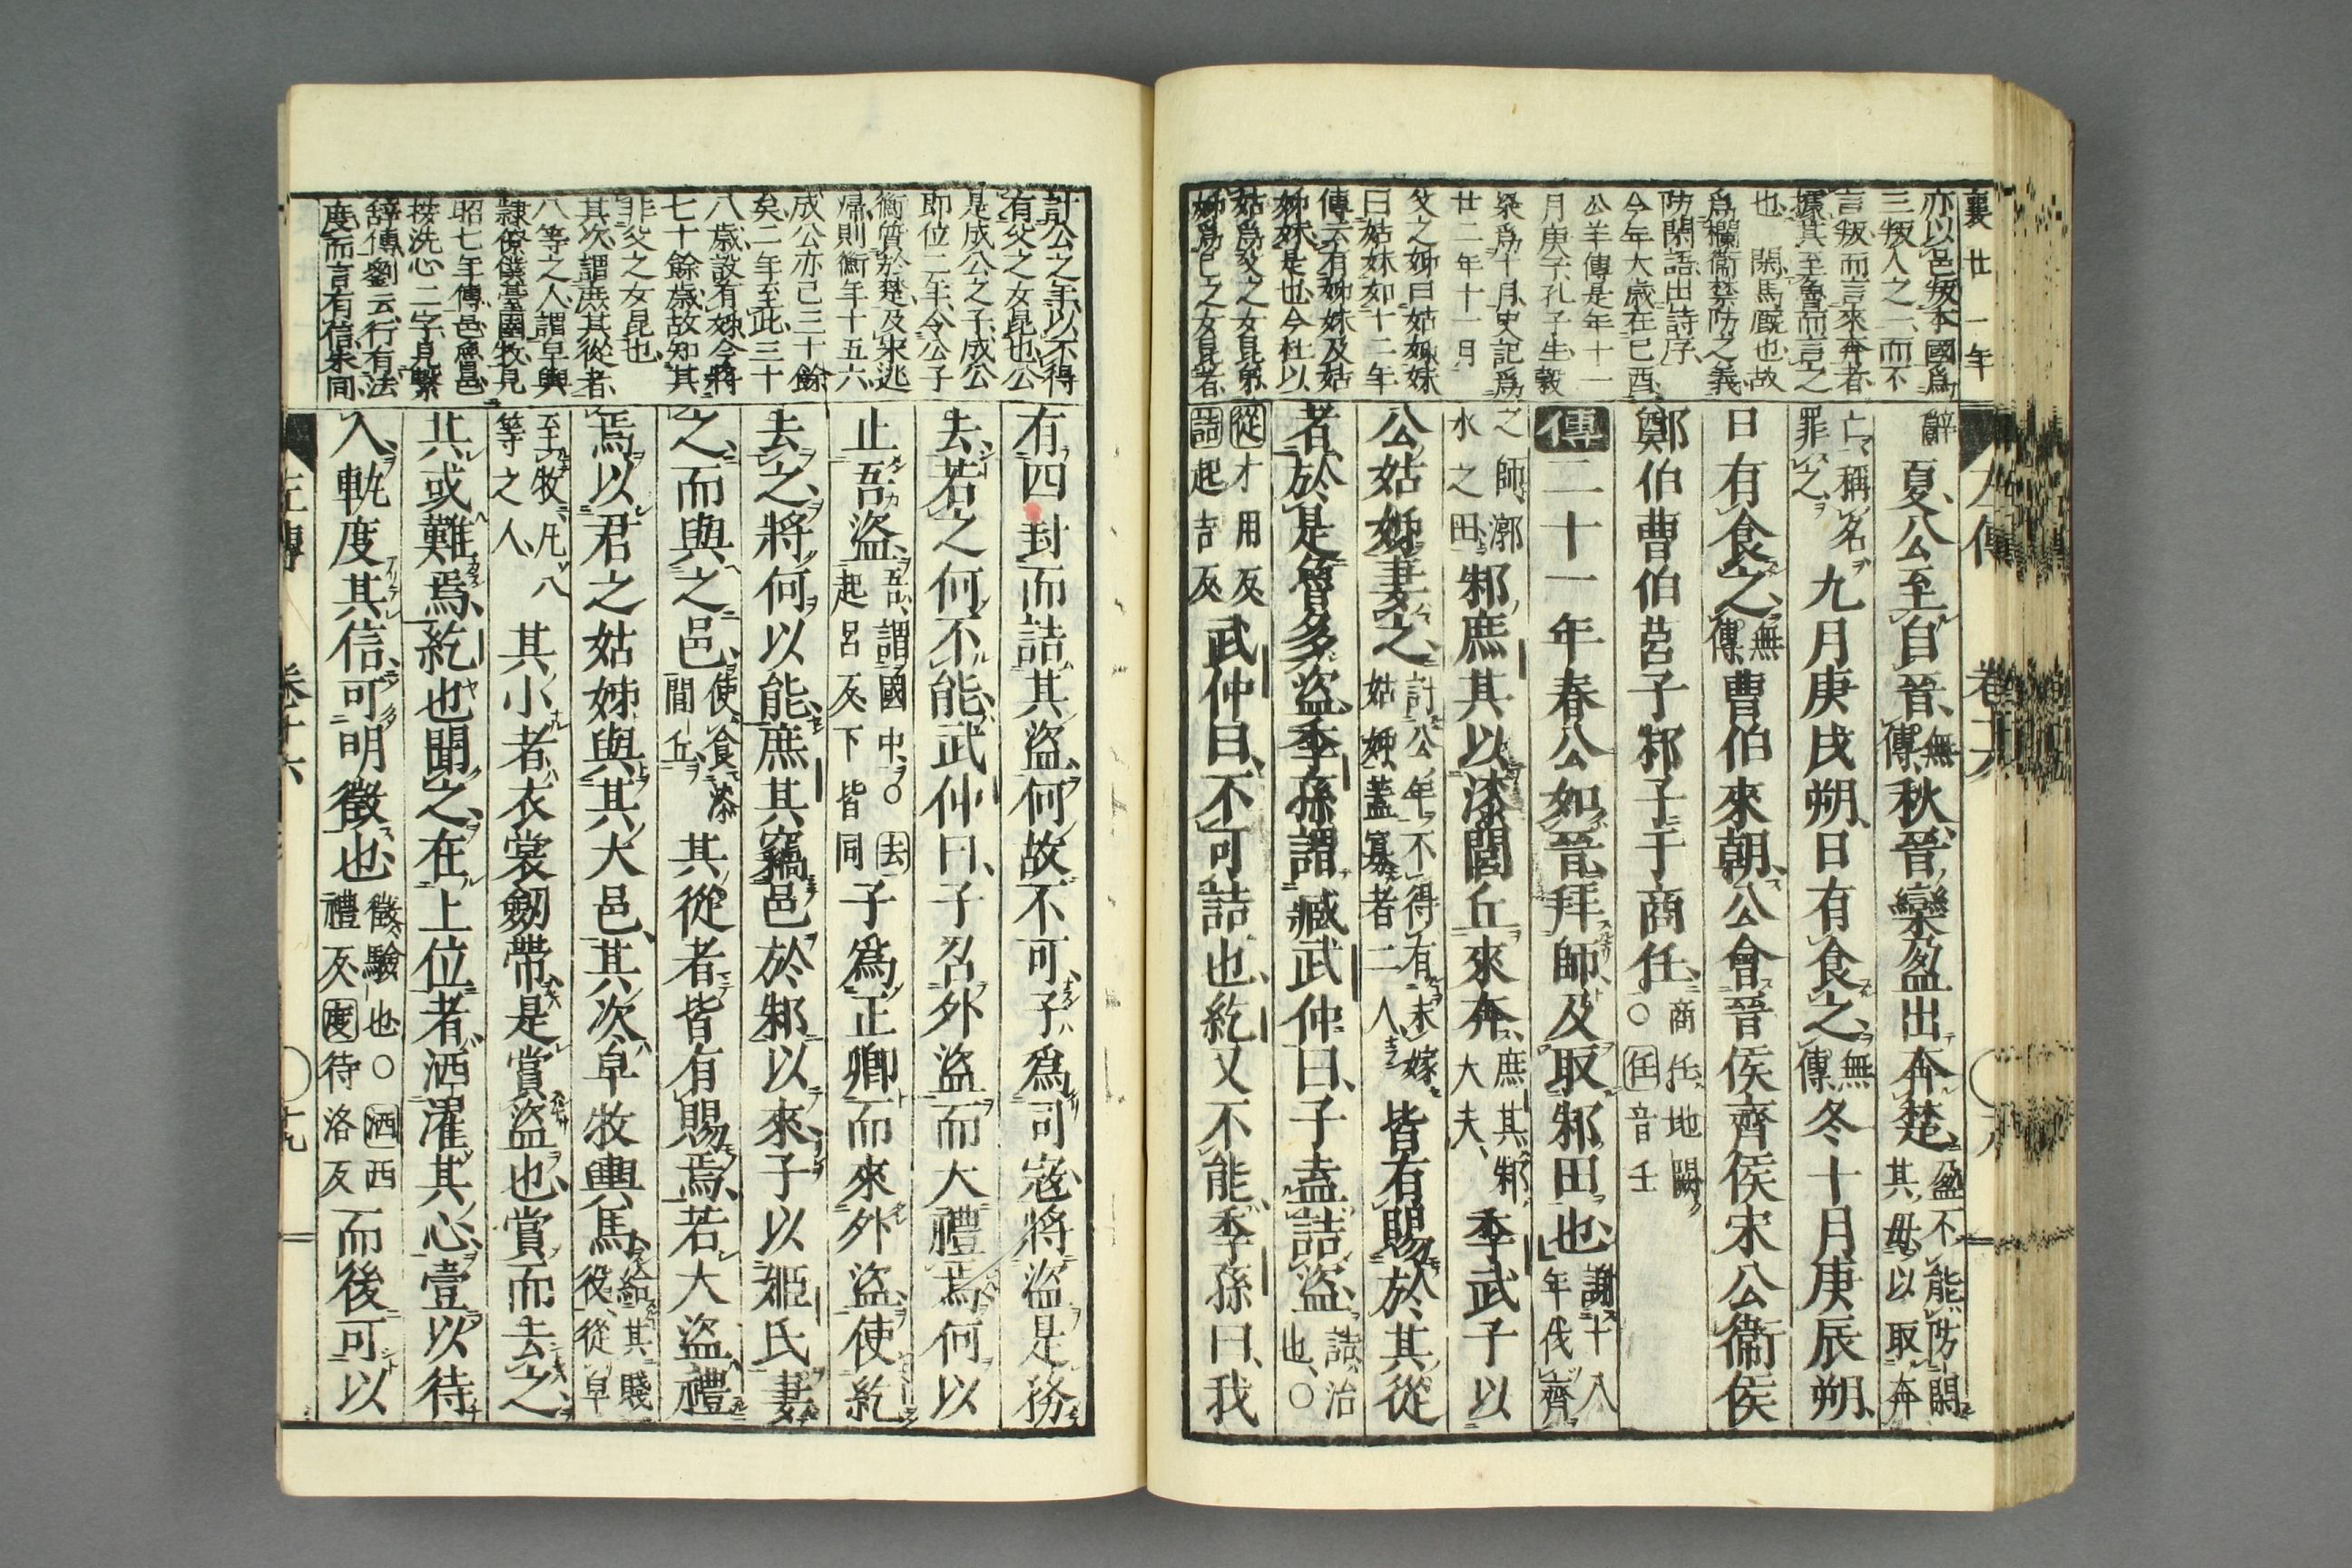 襄廿一年
左傳 卷十六
亦以邑叛本國爲
三叛人之二而不
言叛而言來奔者
據其至魯而言之
也 閑馬廐也故
爲欄衞禁防之義
防閑語出詩序
今年大歳在己酉
公羊傳是年十一
月庚子孔子生穀
梁爲十月史記爲
廿二年十一月
父之姊曰姑姊妹
曰姑妹如十二年
傳云有姊妹及姑
姊妹是也今杜以
姑爲父之女昆弟
姊爲己之女昆者
辭 夏公至自晉無傳秋晉欒盈出奔楚盈不能防閑其母以取奔
亡稱名罪之九月庚戌朔日有食之無傳冬十月庚辰朔
日有食之無傳曹伯來朝公會晉侯齊侯宋公衞侯
鄭伯曹伯莒子邾子于商任商任地闕○任音壬
傳二十一年春公如晉拜師及取邾田也謝十八年伐齊
之師漷水之田邾庶其以漆閭丘來奔庶其邾大夫季武子以
公姑姊妻之計公年不得有未嫁姑姊蓋寡者二人皆有賜於其從
者於是魯多盜季孫謂臧武仲曰子盍詰盜詰治也○
從才用反詰起吉反武仲曰不可詰也紇又不能季孫曰我
計公之年以不得
有父之女昆也公
是成公之子成公
即位二年令公子
衡質於楚及宋逃
歸則衡年十五六
成公亦已三十餘
矣二年至此三十
八歳設有姊今將
七十餘歳故知其
非父之女昆也
其次謂庶其從者
八等之人謂皁輿
隷僚僕臺圉牧見
昭七年傳邑魯邑
按洗心二字見繫
辭傳劉云行有法
度而言有信朱同
有四封而詰其盜何故不可子爲司寇將盜是務
去若之何不能武仲曰子召外盜而大禮焉何以
止吾盜吾謂國中○去起呂反下皆同子爲正卿而來外盜使紇
去之將何以能庶其竊邑於邾以來子以姬氏妻
之而與之邑使食漆閭丘其從者皆有賜焉若大盜禮
焉以君之姑姊與其大邑其次皁牧輿馬給其賤役從皁
至牧凡八等之人其小者衣裳劒帶是賞盜也賞而去之
其或難焉紇也聞之在上位者洒濯其心壹以待
人軌度其信可明徵也徵驗也○洒西禮反度待洛反而後可以
左傳 卷十六 十九